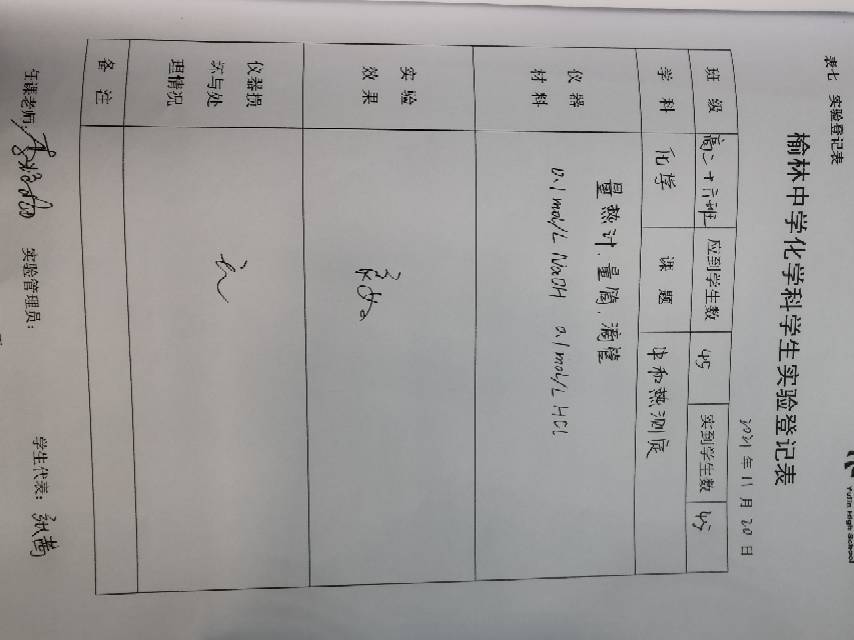 Yulin High School
表七 实验登记表
榆林中学化学科学生实验登记表
2021年11月20日
班级 高二十六班 应到学生数 45 实到学生数 45
学科 化学 课题 中和热测定
仪器材料 量热计、量筒、滴管
0.1 mol/L NaOH 0.1 mol/L HCl
实验效果
仪器损坏与处理情况
备注
任课老师 实验管理员： 学生代表：张茜